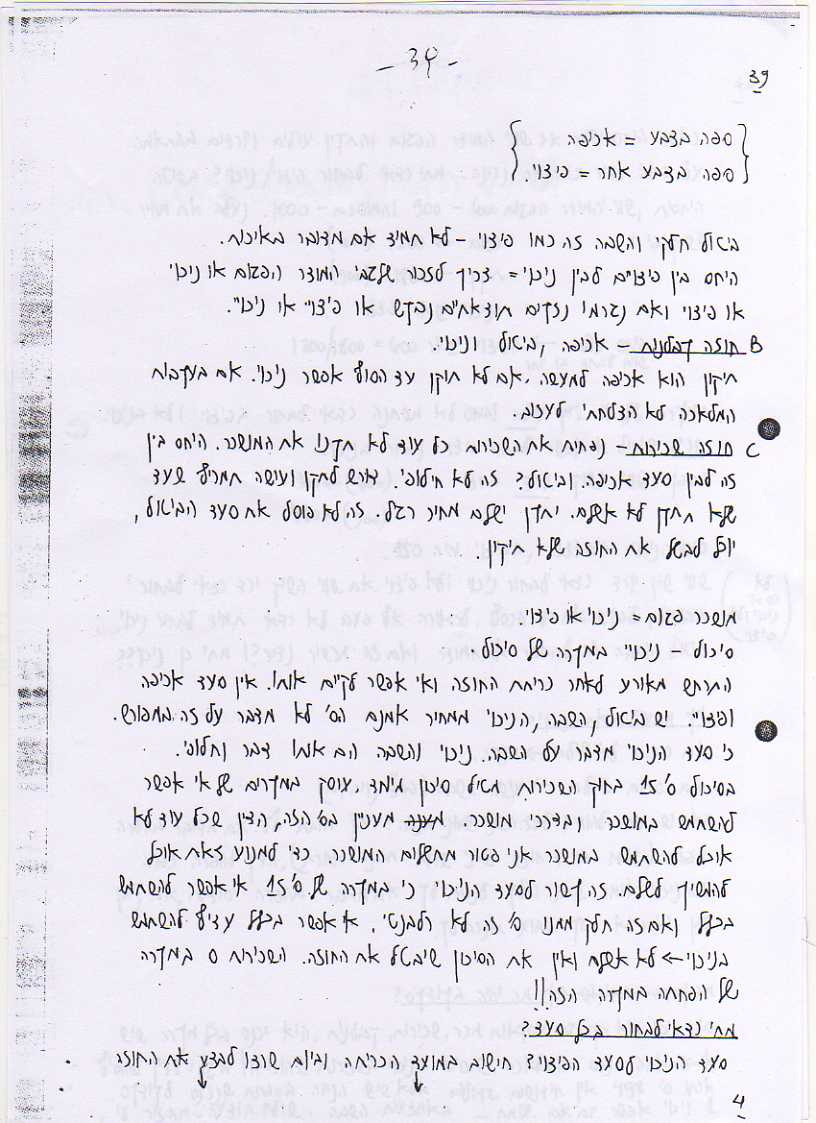 - 39 -
39
ספה בצבע = אכיפה
ספה בצבע אחר = פיצוי.
ביטול חלקי והשבה זה כמו פיצוי – לא תמיד אם מדובר באיכות.
היחס בין פיצויים לבין ניכוי = צריך לזכור שלגבי המוצר הפגום או ניכוי
או פיצוי ואם נגרמו נזקים תוצאתיים נבקש או פיצוי או ניכוי.
B חוזה קבלנות – אכיפה, ביטול וניכוי.
תיקון הוא אכיפה למעשה, אם לא תוקן עד הסוף אפשר ניכוי. אם בעקבות
המלאכה לא הצלחתי לעכוב.
C חוזה שכירות – נפחית את השכירות כל עוד לא תקנו את המושכר. היחס בין
זה לבין סעד אכיפה וביטול? זה לא חילופי. דורש לתקן ועושה תמריץ שעד
שלא תתקן לא אשלם. יתקן ישלם מחיר רגיל. זה לא פוסל את סעד הביטול,
יוכל לבטל את החוזה שלא תיקין.
מושכר פגום = ניכוי או פיצוי
סיכול – ניכוי במקרה של סיכול.
התרחש מאורע לאחר כריתת החוזה ואי אפשר לקיים אותו. אין סעד אכיפה
ופצוי. יש ביטול, השבה, הניכוי ממחיר אמנם הס' לא מדבר על זה במפורש.
כי סעד הניכוי מדבר על השבה. ניכוי והשבה הם אותו דבר וחלופי.
בסיכול ס' 15 בחוק השכירות מטיל סיכון מיוחד. עוסק במקרים שאי אפשר
להשתמש במושכר ובדרכי מושכר. מעניין בס' הזה. הדין שכל עוד לא
אוכל להשתמש במושכר אני פטור מתשלום המושכר. כדי למנוע זאת אוכל
להמשיך לשלם. זה קשור לסעד הניכוי כי במקרה של ס' 15 אי אפשר להשתמש
בכלל ואם זה חלק ממנו ס' זה לא רלבנטי. אי אפשר בכלל עדיף להשתמש
בניכוי → לא אשלם ואין את הסיכון שיבטל את החוזה. השכירות ס במקרה
של הפחתה במקרה הזה!!
מתי כדאי לבחור בכל סעד?
סעד הניכוי לסעד הפיצוי? חישוב במועד הכריתה וביום שרצו לבצע את החוזה
4